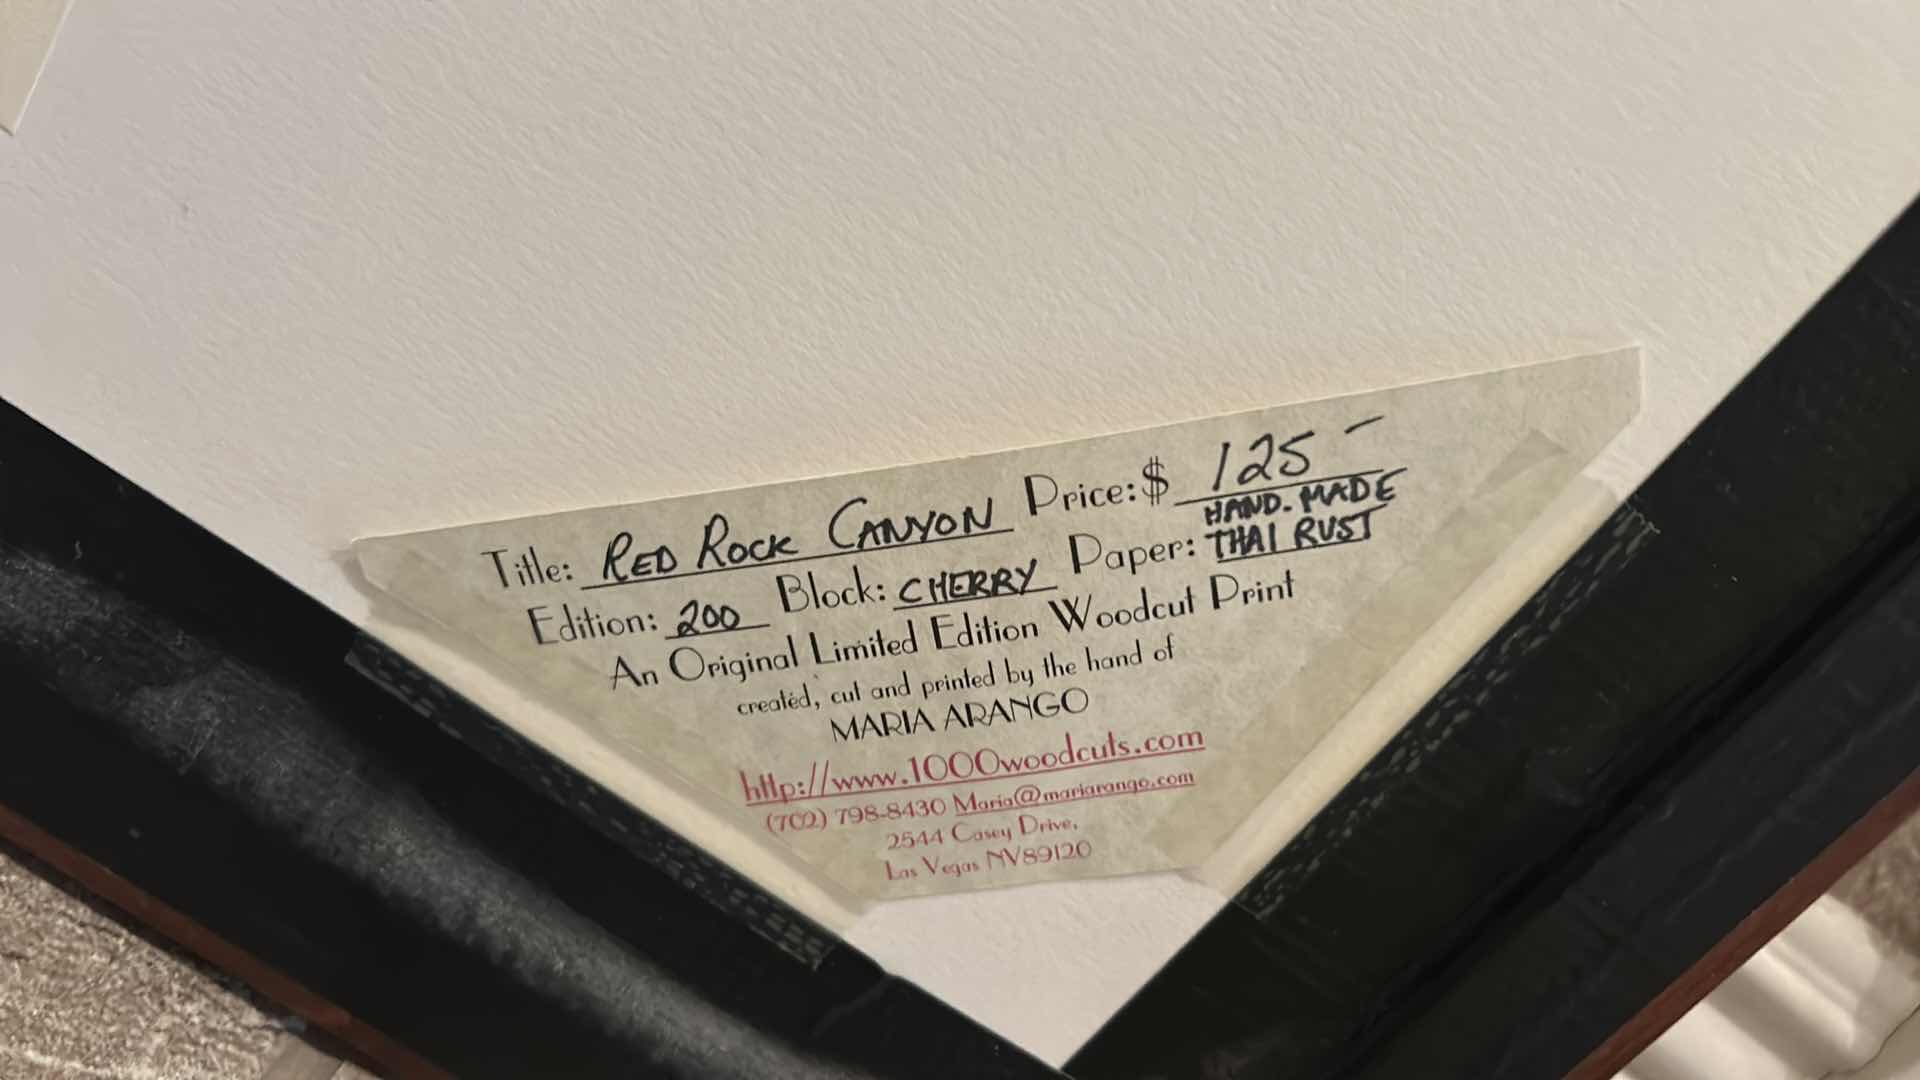 Title: RED ROCK CANYON Price: $ 125 –
Edition: 200 Block: CHERRY Paper: HAND-MADE THAI RUST
An Original Limited Edition Woodcut Print
created, cut and printed by the hand of
MARIA ARANGO
http://www.1000woodcuts.com
(702) 798-8430 Maria@mariarango.com
2544 Casey Drive,
Las Vegas NV89120